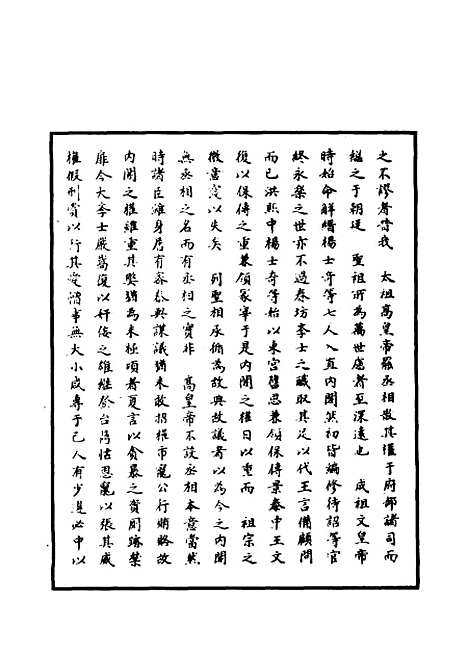 之不謬者嘗我　太祖高皇帝罷丞相散其權于府部諸司而
總之于朝廷　聖祖所為萬世慮者至深遠也　成祖文皇帝
時始命解縉楊士奇等七人入直内閣然初皆編修待詔等官
終永樂之世亦不過春坊學士之職取其足以代王言備顧問
而已洪熙中楊士奇等始以東宮舊恩兼領保傅景泰中王文
復以保傅之重兼領冢宰于是内閣之權日以重而　祖宗之
微意寖以失矣　列聖相承脩為故典故議者以為今之内閣
無丞相之名而有丞相之實非　高皇帝不設丞相本意當然
時諸臣雖身居有密與謀議猶未敢招權市寵公行賄賂故
内閣之權雖重其弊猶為未極頃者夏言以貪暴之資剛躁禁
扉今大學士嚴嵩復以奸佞之雄繼登台席怙恩寵以張其威
權假刑賞以行其愛憎事無大小咸專于己人有少違必中以